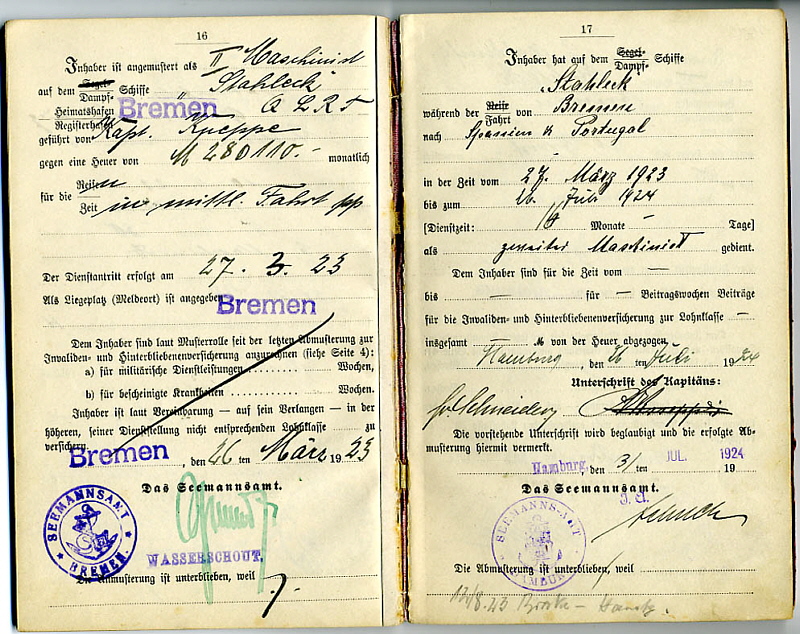 16
Inhaber ist angemustert als II Maschinist
auf dem Segel- Dampf- Schiffe Stahleck
Heimatshafen Registerhafen Bremen Q L R T
geführt von Kapt. Kueppe
gegen eine Heuer von M 280110.- monatlich
für die Reise Zeit in mittl. Fahrt pp
Der Dienstantritt erfolgt am 27. 3. 23
Als Liegeplatz (Meldeort) ist angegeben Bremen
Dem Inhaber sind laut Musterrolle seit der letzten Abmusterung zur
Invaliden- und Hinterbliebenenversicherung anzurechnen (siehe Seite 4):
a) für militärische Dienstleistungen .......... Wochen,
b) für bescheinigte Krankheiten .......... Wochen.
Inhaber ist laut Vereinbarung — auf sein Verlangen — in der
höheren, seiner Dienststellung nicht entsprechenden Lohnklasse zu
versichern.
Bremen, den 26 ten März 1923
Das Seemannsamt.
SEEMANNSAMT BREMEN.
WASSERSCHOUT.
Die Abmusterung ist unterblieben, weil
17
Inhaber hat auf dem Segel- Dampf- Schiffe
"Stahleck
während der Reise Fahrt von Bremen
nach Spanien & Portugal
in der Zeit vom 27. März 1923
bis zum 26. Juli 1924
[Dienstzeit: 16 Monate — Tage]
als zweiter Maschinist gedient.
Dem Inhaber sind für die Zeit vom —
bis — für — Beitragswochen Beiträge
für die Invaliden- und Hinterbliebenenversicherung zur Lohnklasse —
insgesamt M von der Heuer abgezogen.
Hamburg, den 26 Juli 1924
Unterschrift des Kapitäns:
Die vorstehende Unterschrift wird beglaubigt und die erfolgte Ab-
musterung hiermit vermerkt.
Hamburg, den 31 ten JUL. 1924 19
Das Seemannsamt.
J. A.
SEEMANNS-AMT HAMBURG
Die Abmusterung ist unterblieben, weil